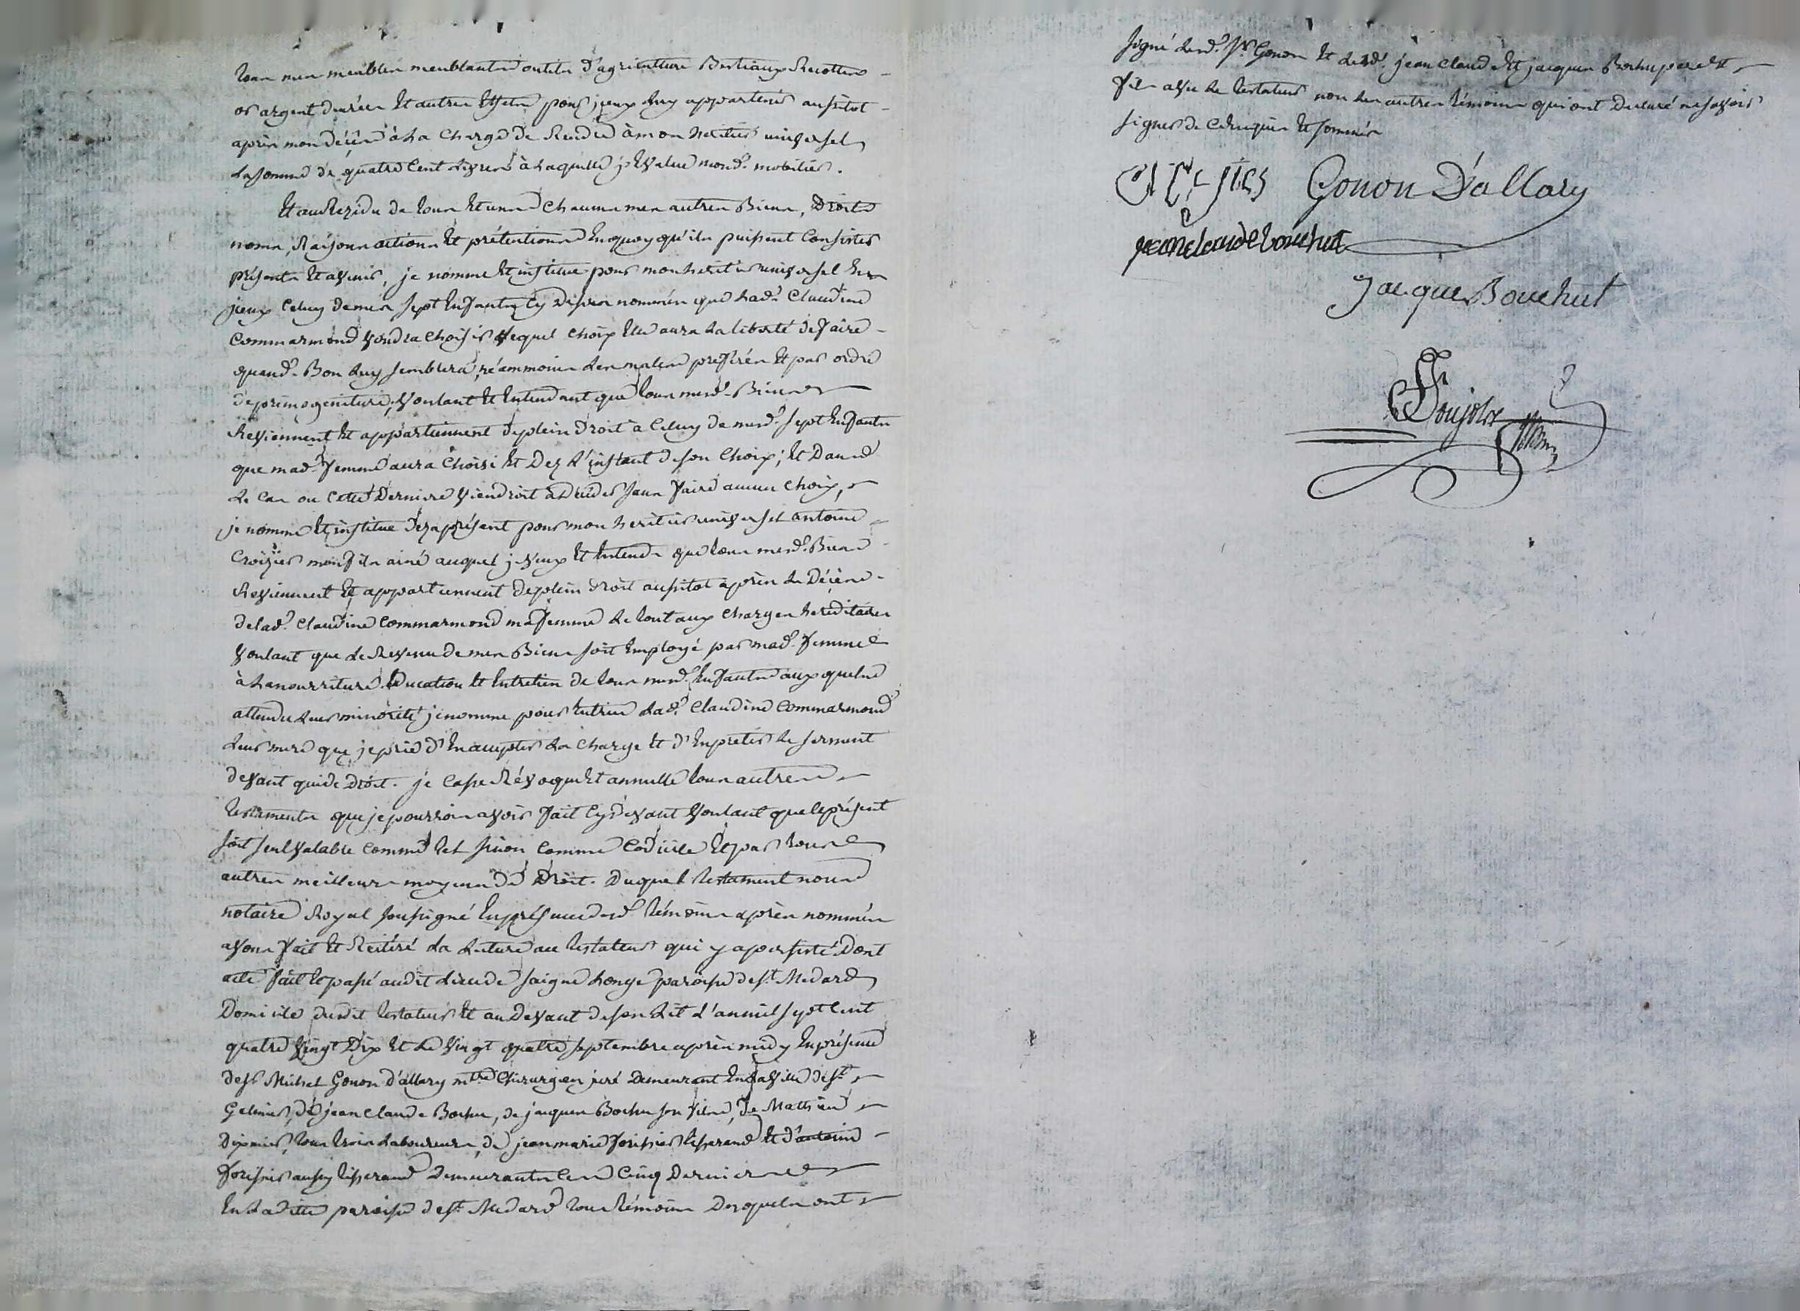 tous mes meubles meublants outils d'agriculture Bestiaux Recoltes
or argent denrées Et autres Effets pour jceux luy appartenir aussitot
après mon décès à la charge de Rendre à mon heritier universel
La somme de quatre Cent Livres à laquelle j'Evalue mond. mobilier.
Et au Rezidu de tous Et uns Chacuns mes autres Biens, Droits
noms, Raisons actions Et prétentions En quoy qu'ils puissent Consister
présents Et avenir, je nomme Et institue pour mon heritier universel En
jceux Celuy de mes sept Enfants Cy dessus nommés que lad. Claudine
Commarmond voudra choisir lequel choix Elle aura la liberté de faire
quand Bon luy semblera, néammoins les males préférés Et par ordre
de primogeniture, voulant Et Entendant que tous mesd. Biens
Reviennent Et appartiennent de plein Droit à Celuy de mesd. sept Enfants
que mad. femme aura Choisi Et Dez L'instant de son Choix; Et Dans
Le Cas ou Cette Derniere viendroit à déceder sans faire aucun Choix,
je nomme Et institue dez àprésent pour mon heritier universel antoine
Croizier mon fils ainé auquel je veux Et Entends que tous mesd. Biens
Reviennent Et appartiennent de plein Droit aussitot après le Décès
de lad. Claudine Commarmond ma femme Le tout aux Charges héréditaires
voulant que Le Revenu de mes Biens soit Employé par mad. femme
à la nourriture Education Et Entretien de tous mesd. Enfants auxquels
attendu Leur minorité je nomme pour tutrice Lad. Claudine Commarmond
Leur mere que je prie d'En accepter La Charge Et d'En preter Le serment
devant qui de Droit. je Casse Révoque Et annulle tous autres
testaments que je pourrois avoir fait Cy devant voulant que le présent
soit seul valable comme tel sinon comme Codicile Et par tous
autres meilleurs moyens de Droit. Duquel testament nous
notaire Royal soussigné En présence desd. témoins après nommés
avons fait Et Réitéré La Lecture au testateur qui y a persisté Dont
acte fait Et passé audit Lieu de Saigne Longe paroisse de St. Medard
Domicile dudit testateur Et au Devant de son Lit L'an mil sept Cent
quatre vingt Dix Et Le vingt quatre septembre après midy En présence
de Sr. Michel Gonon d'allary mtre Chirurgien juré Demeurant En La ville de St.
Galmier, de jean Claude Bochu, de jacques Bochu son fils, de Mathieu
tous trois Laboureurs, de jean marie forissier tisserand Et d'antoine
forissier aussy tisserand Demeurants Ces Cinq Derniers
En Ladite paroisse de St. Medard tous témoins Desquels ont
signé led. Sr. Gonon Et lesd. jean Claude Et jacques Bochu pere Et
fils avec Le testateur non Les autres témoins qui ont Declaré ne savoir
signer de Ce enquis Et sommés
Gonon D'allary
jean claude bouchut
Jacque Bouchut